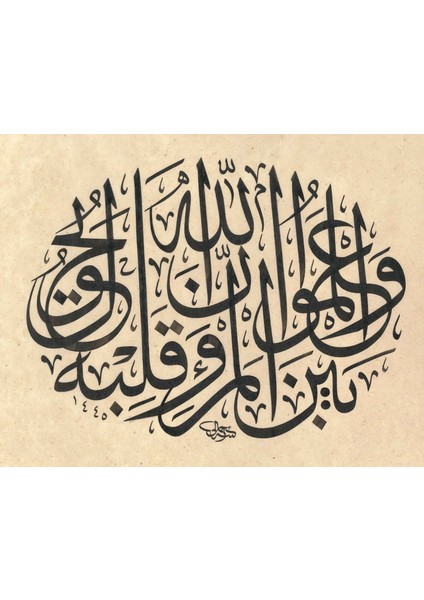 واعلموا أن الله يحول
بين المرء وقلبه
١٤٤٥